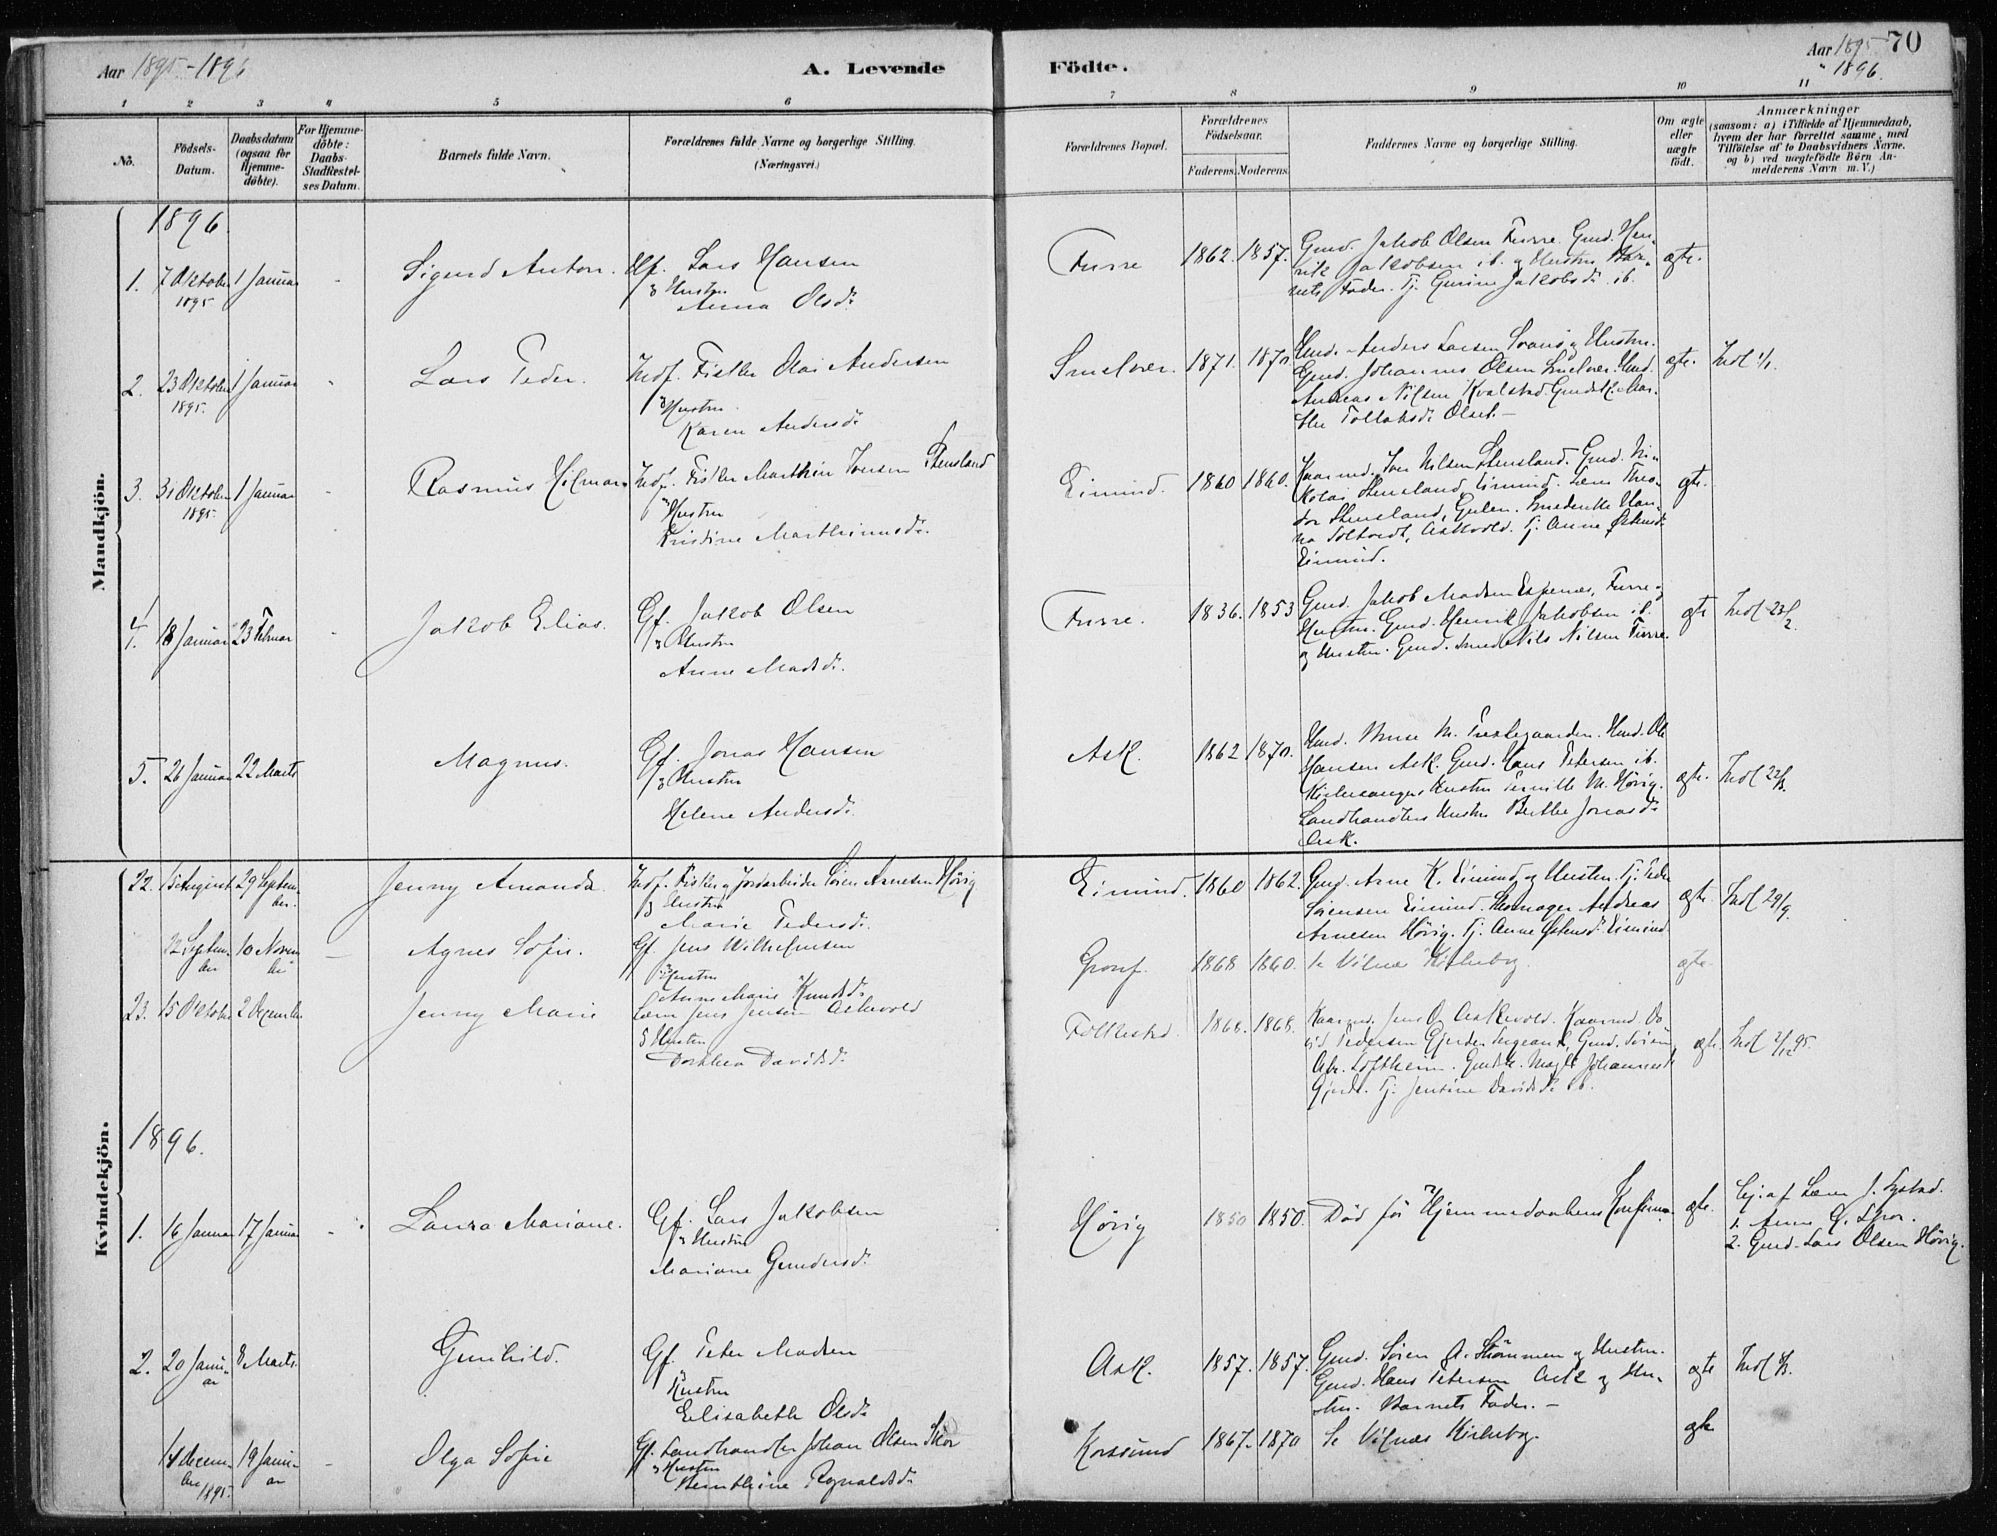 Aar 1895-1896
A. Levende Födte.
Aar 1895
" 1896.
70
1 2 3 4 5 6 7 8 9 10 11
No.
Födsels-
Datum.
Daabsdatum
(ogsaa for
Hjemme-
döbte).
For Hjemme-
döbte:
Daabs-
Stadfæstel-
ses Datum.
Barnets fulde Navn.
Forældrenes fulde Navne og borgerlige Stilling.
(Næringsvei.)
Forældrenes Bopæl.
Forældrenes
Födselsaar.
Faderens. Moderens.
Faddernes Navne og borgerlige Stilling.
Om ægte
eller
uægte
födt.
Anmærkninger
(saasom: a) i Tilfælde af Hjemmedaab,
hvem der har forrettet samme, med
Tilföielse af to Daabsvidners Navne.
og b) ved uægtefödte Börn An-
melderens Navn m. V.)
Mandkjön.
1896
1. 7 Oktober 1895 1 Januar - Sigurd Anton. Lars Hansen
" Hustru
Anna Olsdr.
Furre 1862. 1857.
Gmd. Jakob Olsen Furre. Gmd. Hen-
rik Jakobsen ib. og Hustru. Bar-
nets Fader. Tj. Gurine Jakobsdr. ib.
ægte.
2. 23 Oktober 1895. 1 Januar - Lars Peder. Indf. Fisker Olai Andersen
" Hustru
Karen Andersdr.
Smelvær. 1871. 1870.
Anders Larsen Svanø og Hustru.
Gmd. Johannes Olsen Smelvær.
Andreas Nilsen Kvalstad. Gmdsk. Mar-
the Tollaksdr. Olset. -
ægte. Indl 1/1.
3. 31 Oktober 1895. 1 Januar - Rasmus Hilmar. Indf. Fisker Marthin Iversen Stensland
" Hustru
Kristine Marthinusdr.
Eimind. 1860 1860.
Kaarmd. Iver Nilsen Stensland. Gmd. Ni-
kolai Stensland, Eimind. Lærer Theo-
dor Stensland, Gulen. Han-
na Askvold. Tj. Anne Østensdr.
Eimind.
ægte.
4. 18 Januar 23 Februar - Jakob Elias. Gf. Jakob Olsen
" Hustru
Anne Madsdr.
Furre. 1836. 1853
Gmd. Jakob Madsen Espenes, Furre og
Hustru. Gmd. Henrik Jakobsen ib.
og Hustru. Gmd. Nils Nilsen Furre.
ægte Indl 23/2.
5. 26 Januar 22 Marts Magnus. Gf. Jonas Hansen
" Hustru
Helene Andersdr.
Ask. 1862 1870.
M. Prestegaarden. Ole
Hansen Ask. Gmd. Hans Petersen ib.
Kirkesangers Hustru Pernille M. Høvig.
Landhandlers Hustru Berthe Jonasdr.
Ask.
ægte. Indl 22/3.
Kvindekjön.
22. 15 August 29 Septem-
ber. Jenny Amanda. Indf. Fisker og Jordarbeider Søren Arnesen Høvig
" Hustru
Marie Pedersdr.
Eimind. 1860 1862.
Gmd. Arne K. Eimind og Hustru. Tj. Peder
Sørensen Eimind. Skomager Andreas
Arnesen Høvig. Tj. Anne Østensdr. Eimind.
ægte. Indl 29/9.
22 Septem-
ber 10 Novem
ber - Agnes Sofie. Gf. Jens Wilhelmsen
" Hustru
Anne Marie Knudsdr.
1868 1860. Se Vilnæs Kirkebog. ægte.
23. 15 Oktober 2 December Jenny Marie Lærer Jens Jensen Askevold
" Hustru
Dorthea Davidsdr.
Folkestad. 1868. 1868.
Kaarmd. Jens O. Askevold. Kaarmd. Da-
vid Pedersen Gjerde. Sergeant, Gmd. Søren
Loftheim. Gmdsk. Johannesdr.
Gjerde. Tj. Jensine Davidsdr. ib.
ægte. Indl 2/12 95.
1896.
1. 16 Januar 17 Januar - Laura Mariane. Gf. Lars Jakobsen
" Hustru
Mariane Gundersdr.
Høvig 1850 1850. Død før Hjemmedaabens Konfirma. ægte.
Ej: af Lærer J. Systad.
1. Anne O. Skor.
2. Gmd. Lars Olsen Høvig.
2. 20 Janu-
ar 8 Marts. Gunhild. Gf. Peter Madsen
" Hustru
Elisabeth Olsdr.
Ask. 1857. 1857.
Gmd. Søren A. Strømmen og Hustru.
Gmd. Hans Petersen Ask og Hu-
stru. Barnets Fader. -
ægte Indl 8/3.
14 Decem-
ber 1895. 19 Janu-
ar - Olga Sofie Gf. Landhandler Johan Olsen Skor
" Hustru
Bernthine Rognaldsdr.
Korssund 1867. 1870 Se Vilnæs Kirkebog. ægte